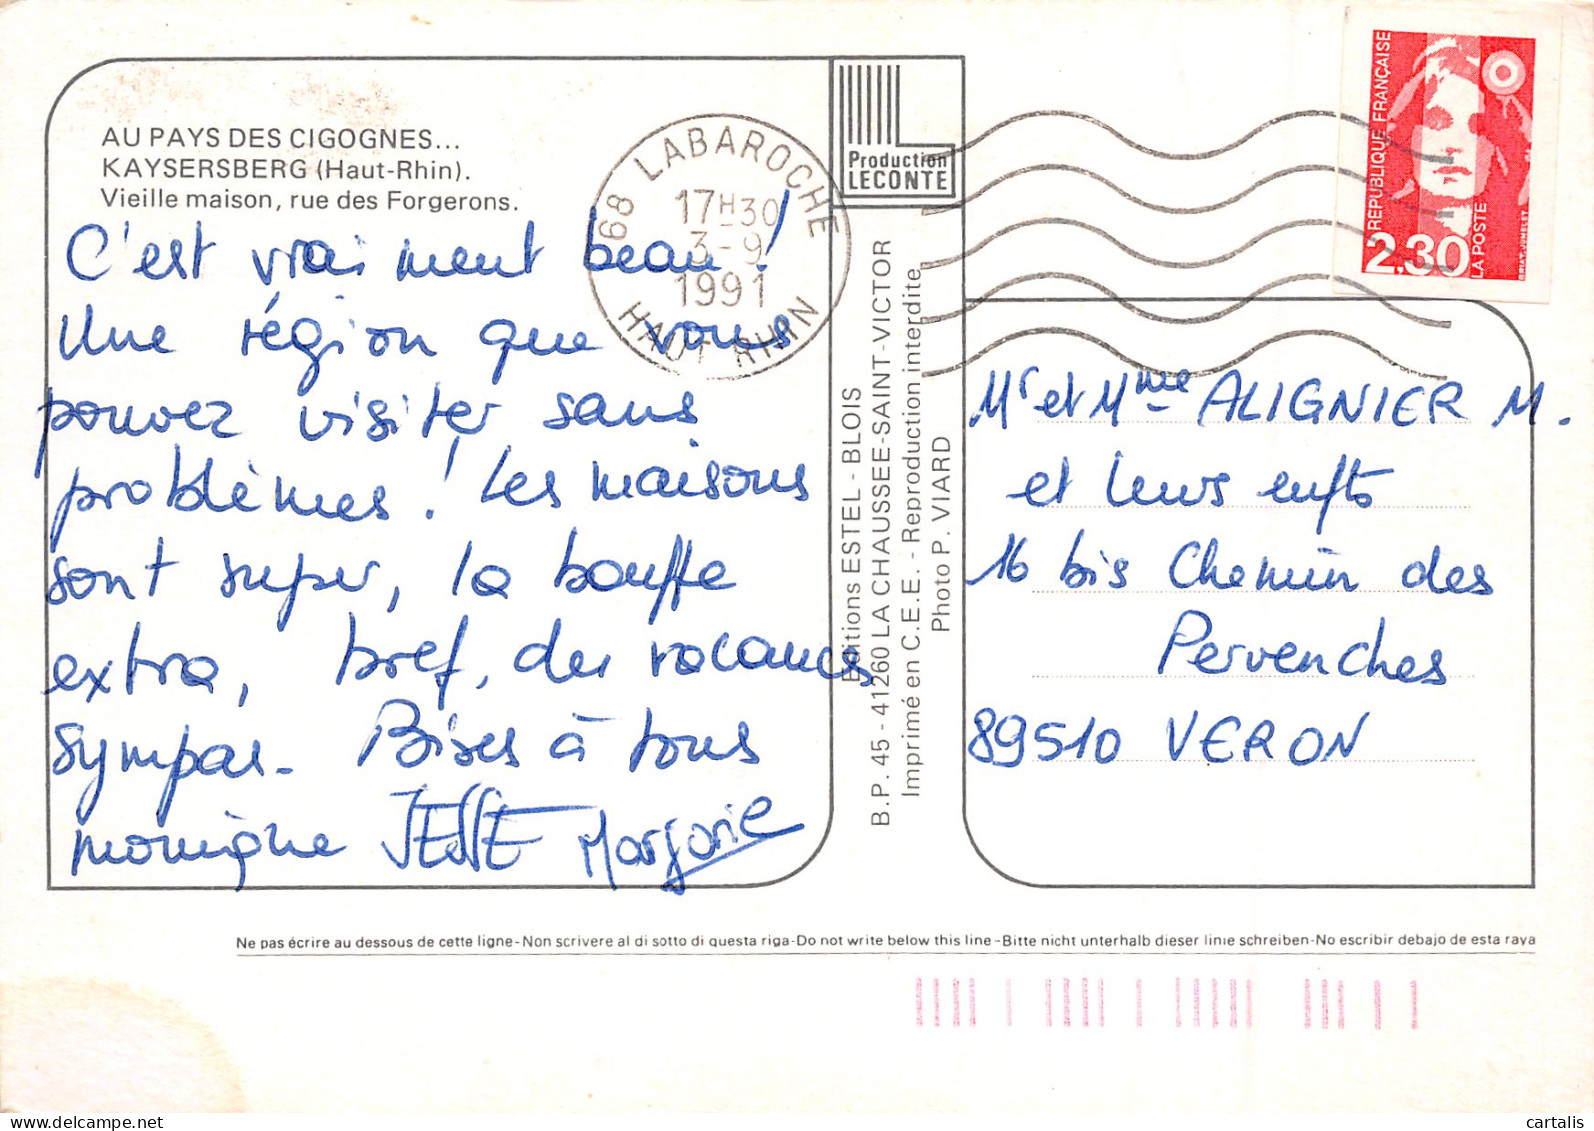 AU PAYS DES CIGOGNES...
KAYSERSBERG (Haut-Rhin).
Vieille maison, rue des Forgerons.
C'est vraiment beau!
Une région que vous
pouvez visiter sans
problèmes! Les maisons
sont super, la bouffe
extra, bref, des vacances
sympas. Bises à tous
monique JESSE Marjorie
68 LABAROCHE
17H30
3-9
1991
HAUT RHIN
Production
LECONTE
Editions ESTEL - BLOIS
B.P. 45 - 41260 LA CHAUSSEE-SAINT-VICTOR
Imprimé en C.E.E. - Reproduction interdite
Photo P. VIARD
RÉPUBLIQUE FRANÇAISE
2.30
LA POSTE
BRIAT. JUMELET
Mr et Mme ALIGNIER M.
et leurs enfts
16 bis Chemin des
Pervenches
89510 VERON
Ne pas écrire au dessous de cette ligne-Non scrivere al di sotto di questa riga-Do not write below this line-Bitte nicht unterhalb dieser linie schreiben-No escribir debajo de esta raya
cartalis